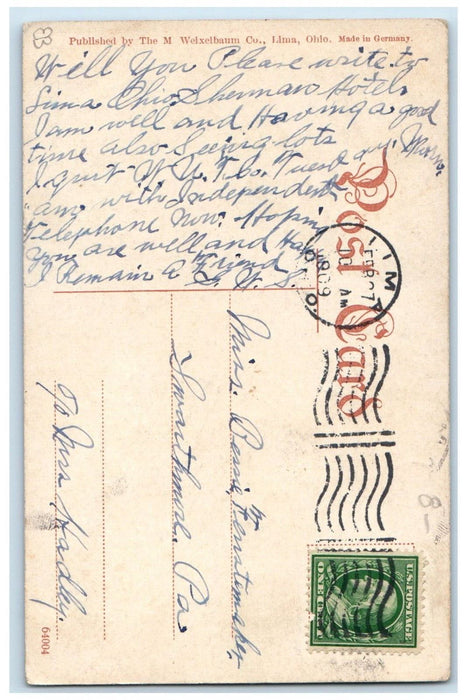 Published by The M Weixelbaum Co., Lima, Ohio. Made in Germany.
Will You Please write to
Lima Ohio Sherman Hotel
I am well and Having a good
time also Seeing lots
I quit W. U. T. Co. Tuesday. Morn.
am with Independent
Telephone Now. Hoping
You are well and Hap
I Remain a Friend
Post Card
LIMA
FEB 27
10 AM
1909
O.
Miss. Bernie,
Swarthmore. Pa
Miss Hadley.
U.S. POSTAGE
ONE
64004
8-